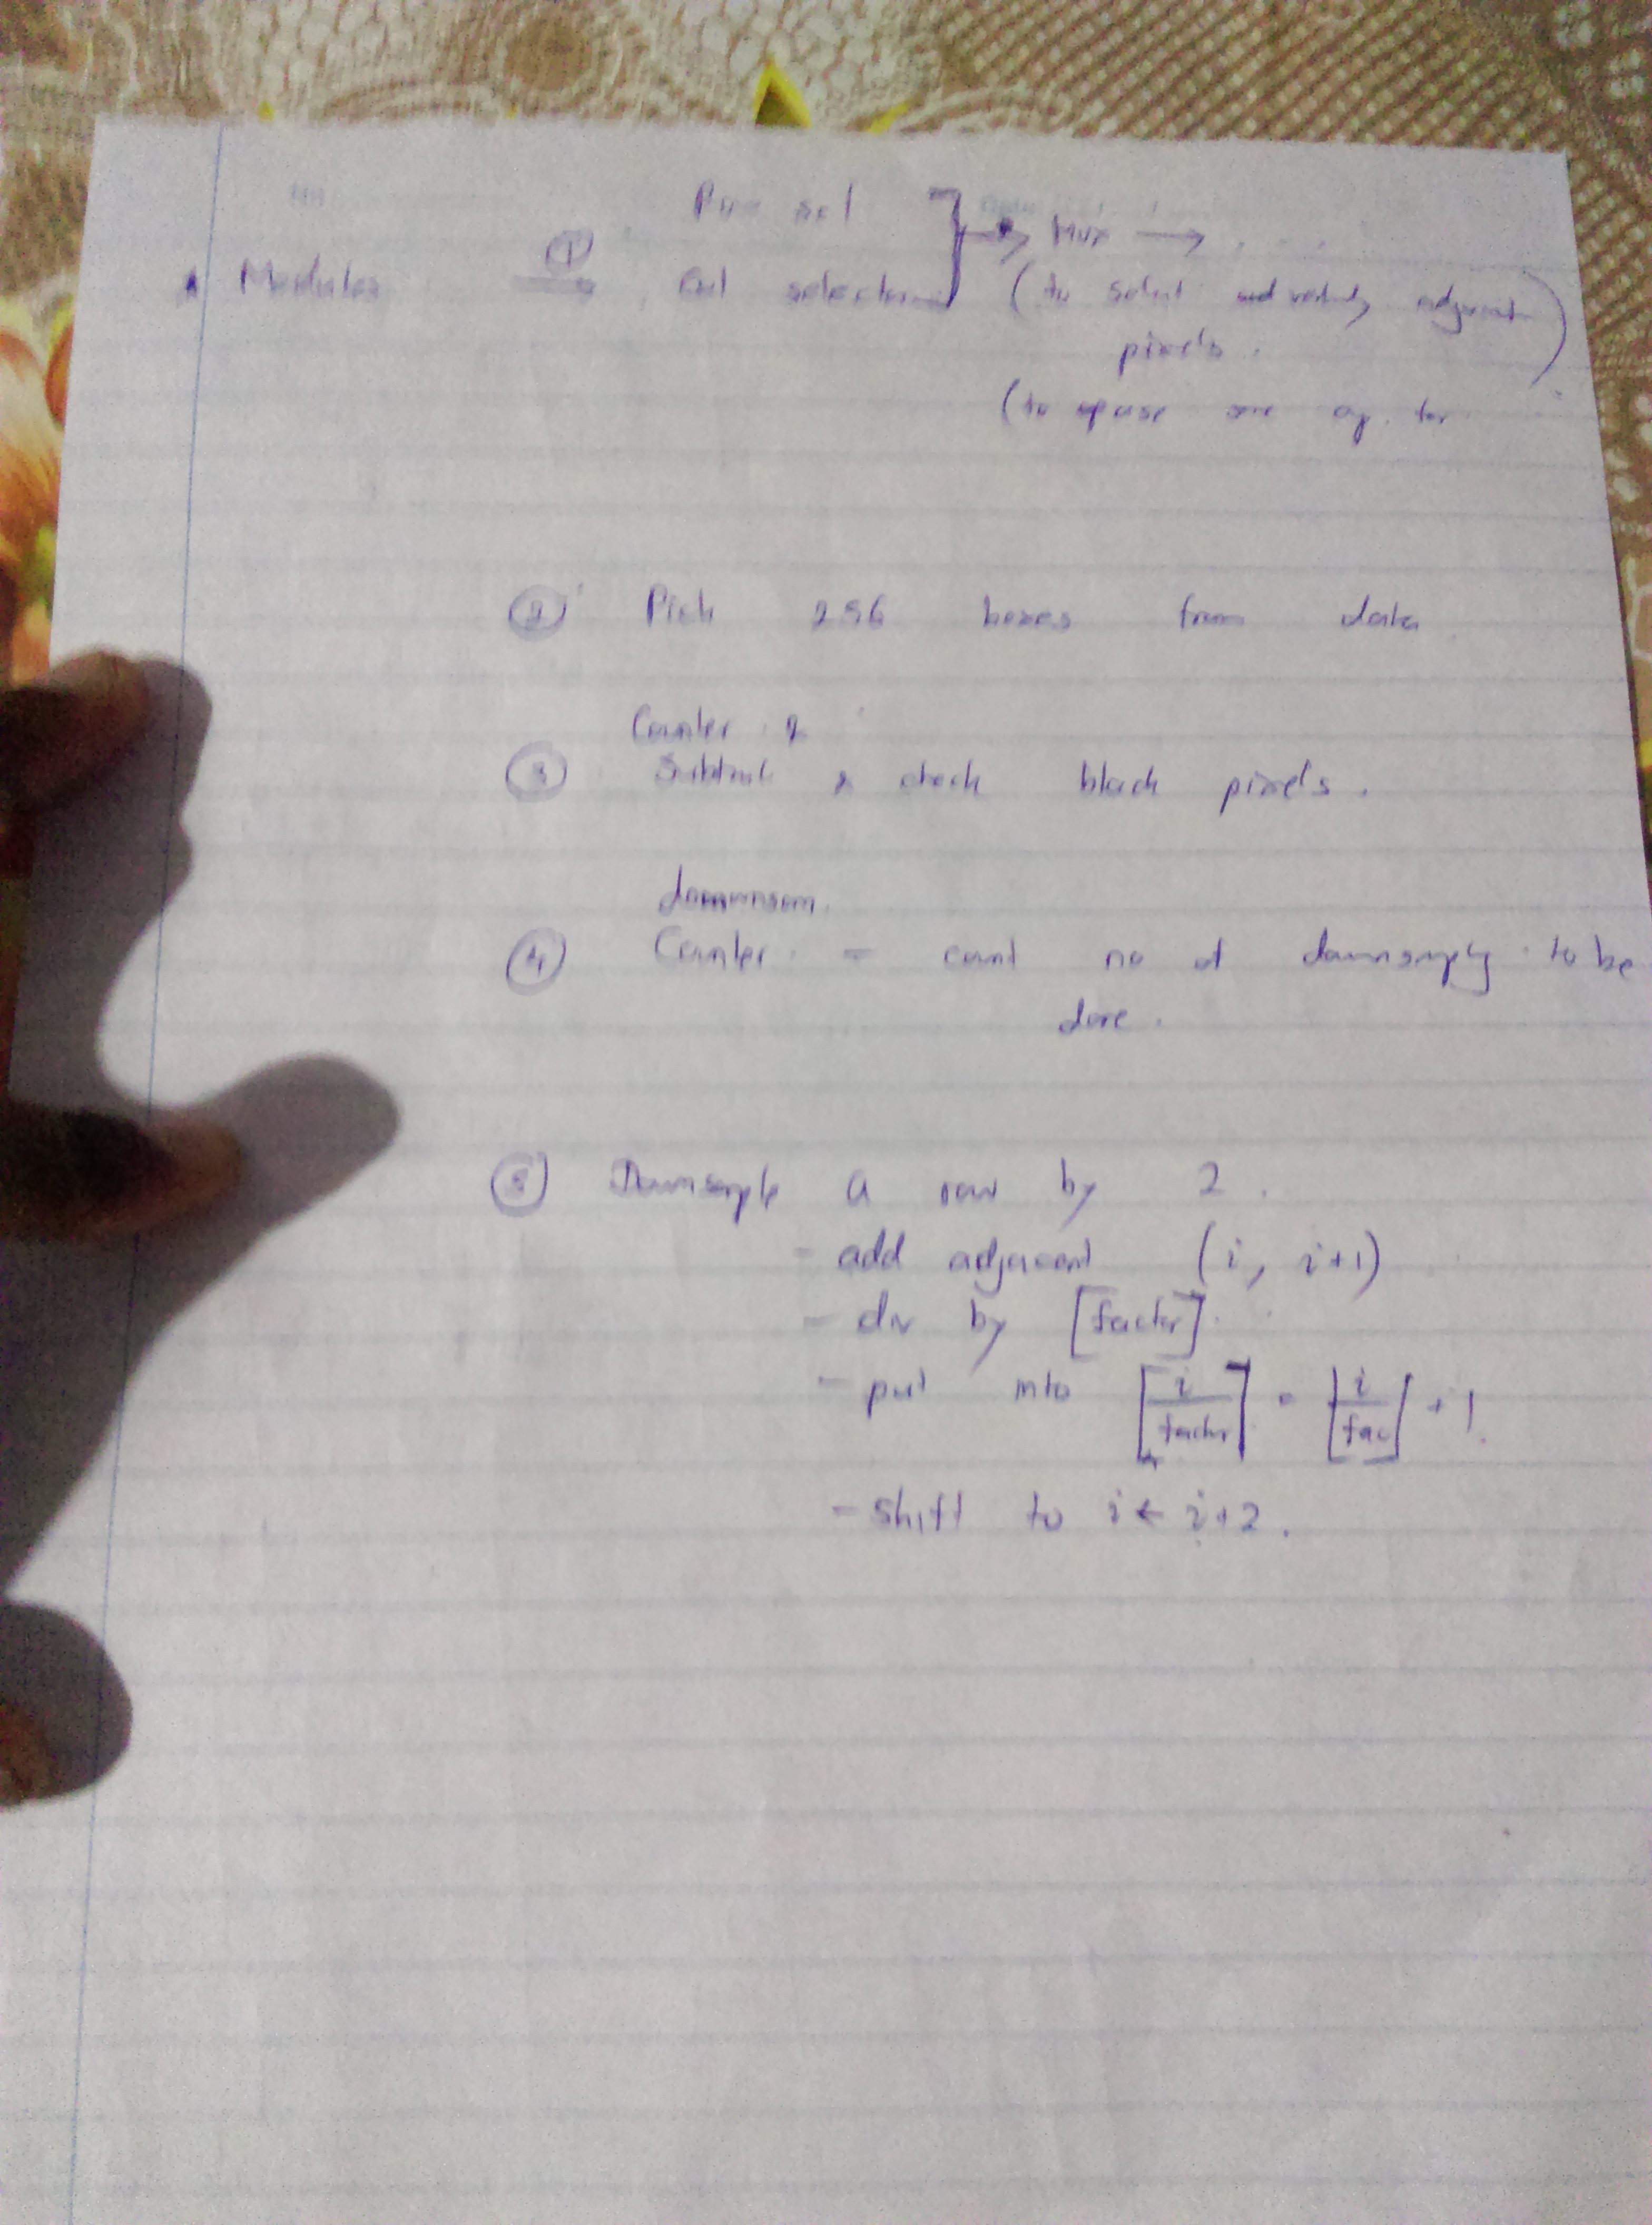 sel
Modules ① Col selection ] → Mux →
(to select vertically adjacent
pixels.)
(to
② Pick 256 boxes from data
Counter 2
③ Subtract & check black pixels.
downsam.
④ Counter - count no of downsamply to be
done.
⑤ Downsample a row by 2.
- add adjacent (i, i+1)
- div by [factor].
- put into ⌈i/factor⌉ = ⌊i/fac⌋ + 1.
- shift to i ← i+2.